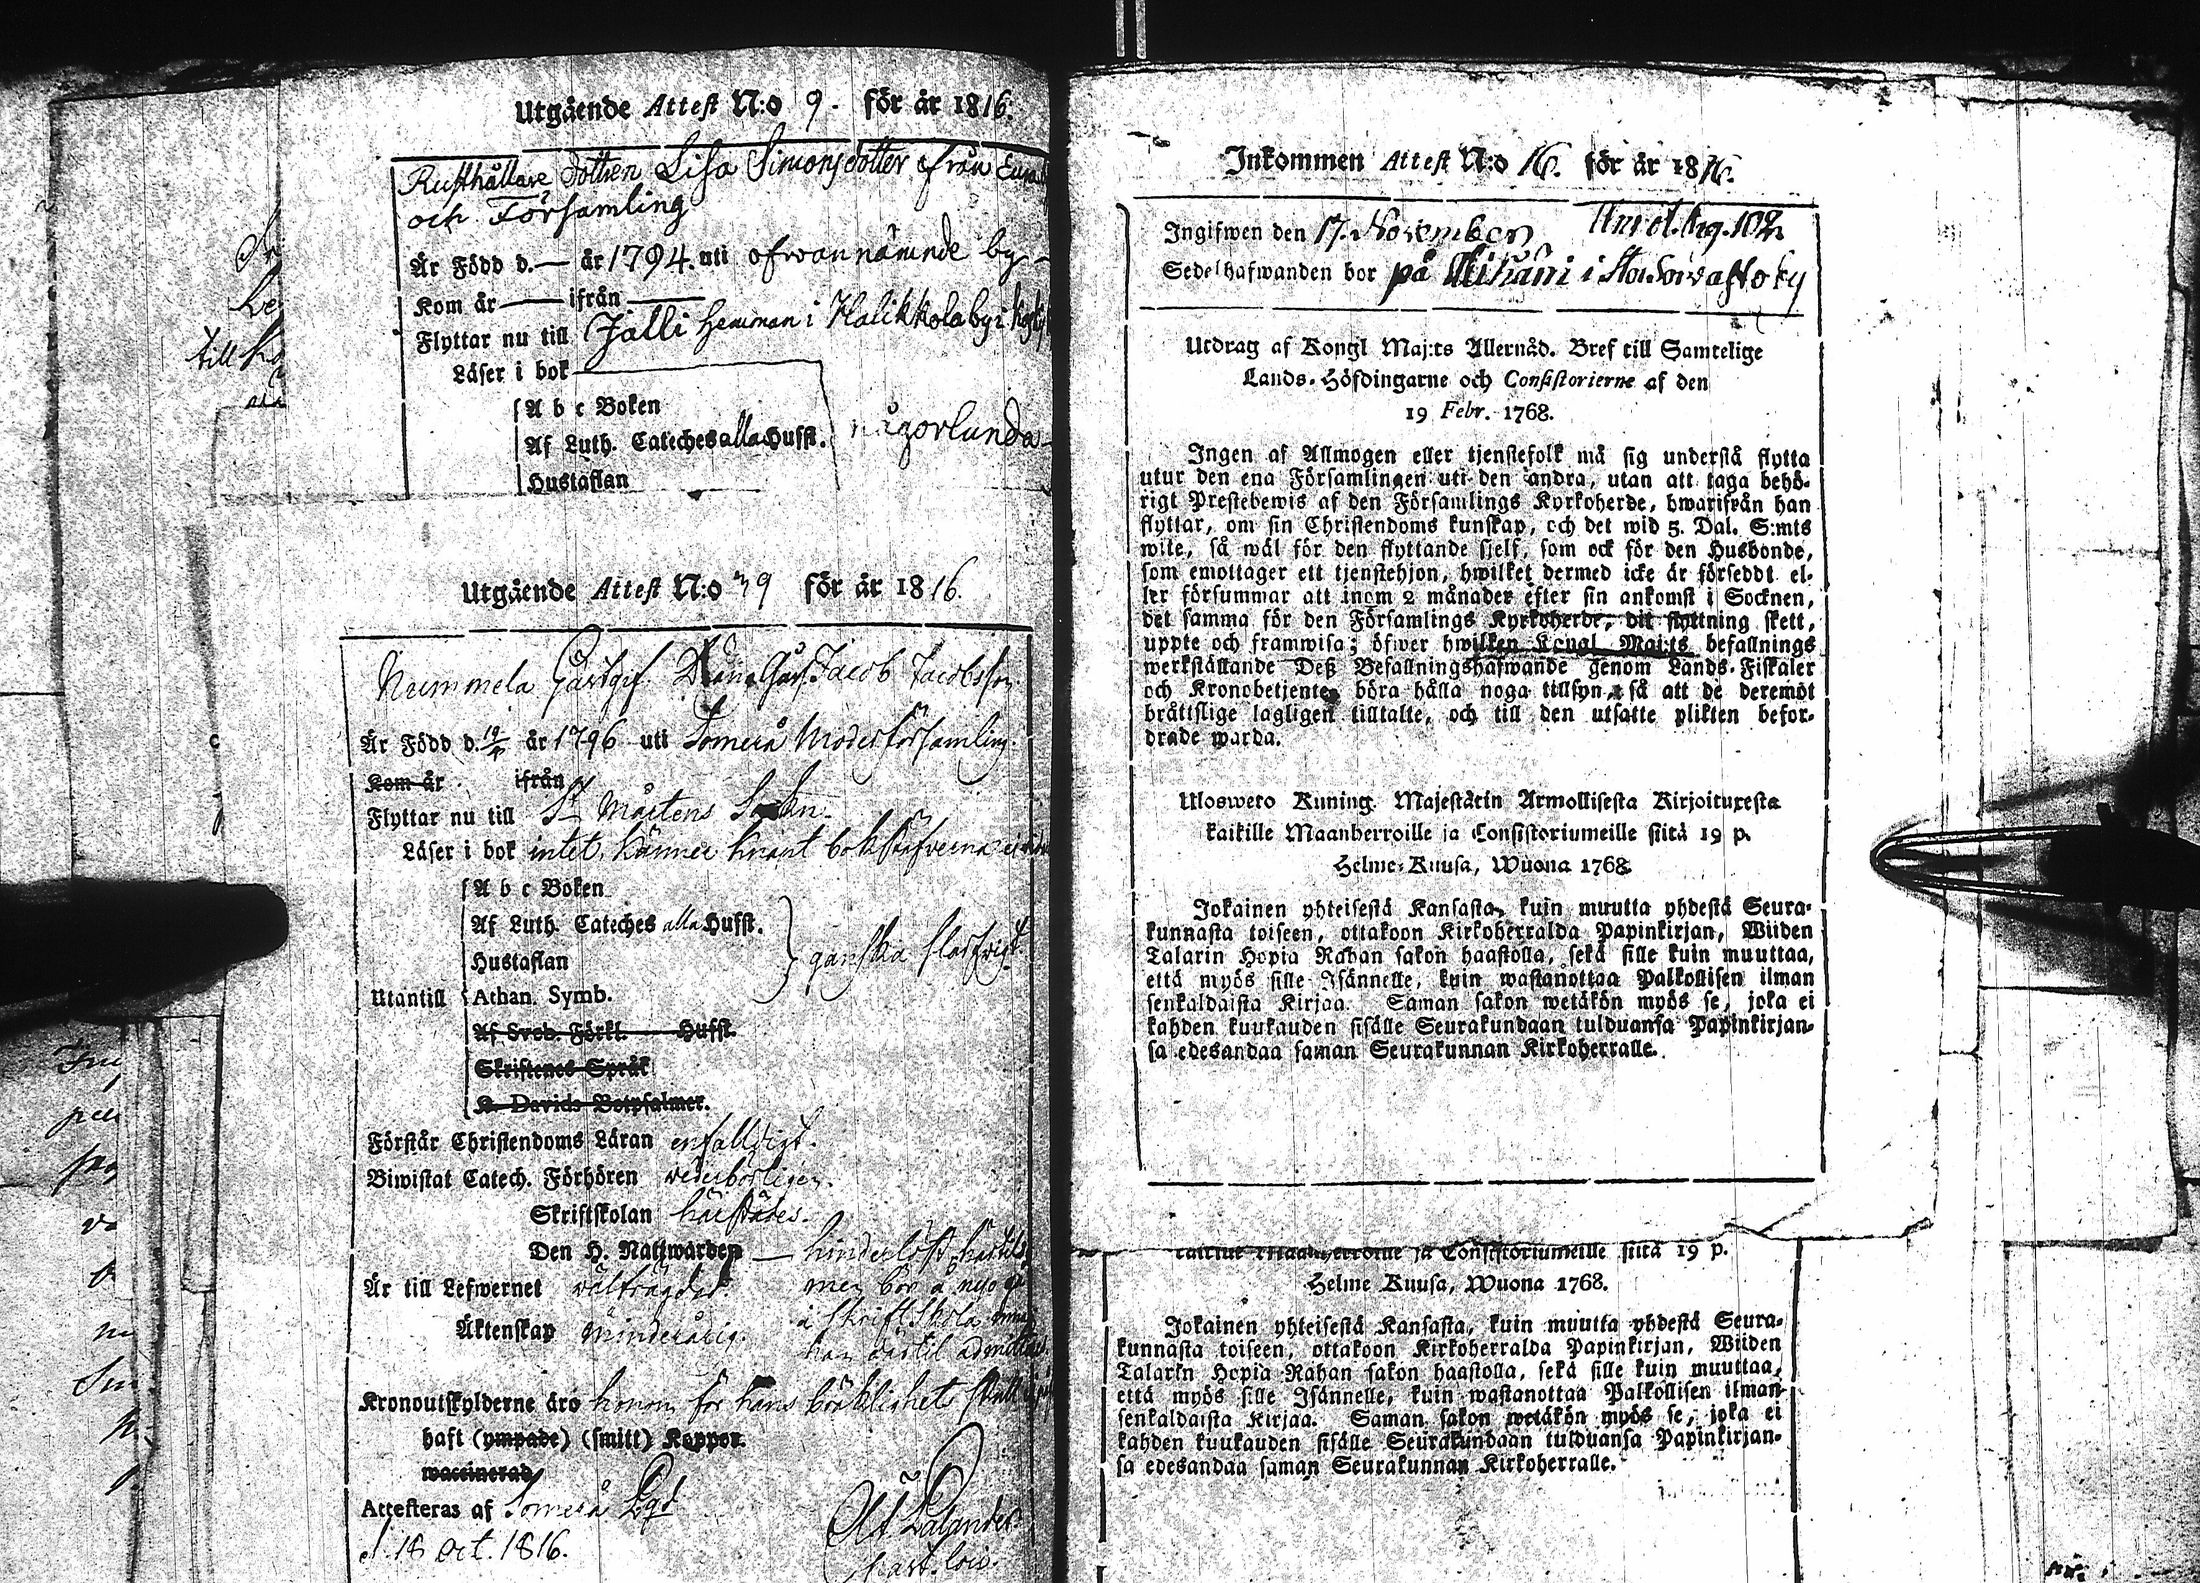 Utgående Attest N:o 9. för år 1816.
Rusthållare dottren Lisa Simonsdotter från
och Församling
Är Född d. — år 1794. uti ofwannämnde by
Kom år — ifrån —
Flyttar nu till Jalli hemman i Halikkola by i
Läser i bok
A b c Boken
Af Luth. Cateches alla Hufst. någorlunda
Hustaflan
Utgående Attest N:o 39 för år 1816.
Nummela Gästgif. Jacob Jacobsson
Är Född d. år 1796 uti Somerå Moderförsamling.
Kom år ifrån
Flyttar nu till St Mårtens Sokn
Läser i bok intet, känner knapt bokstäfverna
A b c Boken
Af Luth. Cateches alla Hufst.
Hustaflan ganska slarfwigt.
Utantill Athan. Symb.
Af Sveb. Förkl. Hufst.
Skriftenes Språk
K. Davids Botpsalmer.
Förstår Christendoms Läran enfalldigt.
Biwistat Catech. Förhören wederbörligen.
Skriftskolan härstädes.
Den H. Nattwarden — hinderlöst härtils
Är till Lefwernet wälfrägdad. men bör å nyo gå
i Skriftskola innan
Äktenskap Minderårig. han därtil admitteras
Kronoutskylderne äro honom för hans bräklighets skull
haft (ympade) (smitt) Koppor.
waccinerad
Attesteras af Somerå Pgd
d. 18 Oct. 1816.
Past. loci.
Inkommen Attest N:o 16. för år 1816.
Ingifwen den 17. November pag. 102
Sedelhafwanden bor på
Utdrag af Kongl Maj:ts Allernåd. Bref till Samtelige
Lands-Höfdingarne och Consistorierne af den
19 Febr. 1768.
Ingen af Allmogen eller tjenstefolk må sig understå flytta
utur den ena Församlingen uti den andra, utan att taga behö-
rigt Prestebewis af den Församlings Kyrkoherde, hwarifrån han
flyttar, om sin Christendoms kunskap, och det wid 5. Dal. S:mts
wite, så wäl för den flyttande sjelf, som ock för den Husbonde,
som emottager ett tjenstehjon, hwilket dermed icke är försedt el-
ler försummar att inom 2 månader efter sin ankomst i Socknen,
det samma för den Församlings Kyrkoherde, dit flyttning skett,
uppte och framwisa; öfwer hwilken Kongl Maj:ts befallnings
werkställande Deß Befallningshafwande genom Lands-Fiskaler
och Kronobetjente böra hålla noga tillsyn, så att de deremot
bråttslige lagligen tilltalte, och till den utsatte plikten befor-
drade warda.
Uloswero Kuning. Majestätin Armollisesta Kirjoituresta
kaikille Maanherroille ja Consistoriumeille siitä 19 p.
Helme-Kuusa, Wuona 1768.
Jokainen yhteisestä Kansasta, kuin muutta yhdestä Seura-
kunnasta toiseen, ottakoon Kirkoherralda Papinkirjan, Wiiden
Talarin Hopia Rahan sakon haastolla, sekä sille kuin muuttaa,
että myös sille Isännelle, kuin wastanottaa Palkollisen ilman
senkaldaista Kirjaa. Saman sakon wetäkön myös se, joka ei
kahden kuukauden sisälle Seurakundaan tulduansa Papinkirjan-
sa edesandaa saman Seurakunnan Kirkoherralle.
kaikille Maanherroille ja Consistoriumeille siitä 19 p.
Helme Kuusa, Wuona 1768.
Jokainen yhteisestä Kansasta, kuin muutta yhdestä Seura-
kunnasta toiseen, ottakoon Kirkoherralda Papinkirjan, Wiiden
Talarin Hopia Rahan sakon haastolla, sekä sille kuin muuttaa,
että myös sille Isännelle, kuin wastanottaa Palkollisen ilman
senkaldaista Kirjaa. Saman sakon wetäkön myös se, joka ei
kahden kuukauden sisälle Seurakundaan tulduansa Papinkirjan-
sa edesandaa saman Seurakunnan Kirkoherralle.